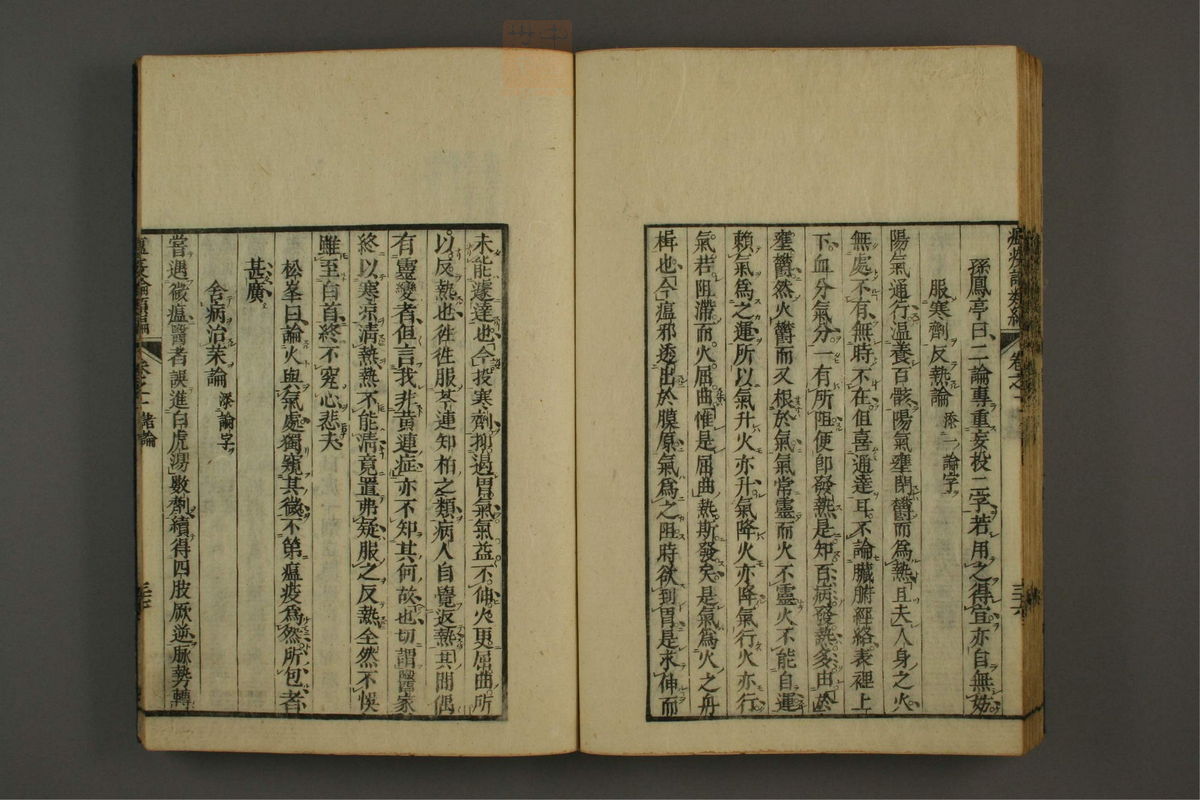 瘟疫論類編 卷之二
孫鳳亭曰二論專重妄投二字若用之得宜亦自無妨
服寒劑反熱論 添一論字
陽氣通行温養百骸陽氣壅閉鬱而爲熱且夫人身之火
無處不有無時不在但喜通達耳不論臟腑經絡表裡上
下血分氣分一有所阻便即發熱是知百病發熱多由於
壅鬱然火鬱而又根於氣氣常靈而火不靈火不能自運
賴氣爲之運所以氣升火亦升氣降火亦降氣行火亦行
氣若阻滯而火屈曲惟是屈曲熱斯發矣是氣爲火之舟
楫也今瘟邪透出於膜原氣爲之阻時欲到胃是求伸而
未能遽達也今投寒劑抑遏胃氣氣益不伸火更屈曲所
以反熱也徃徃服芩連知柏之類病人自覺返熱其間偶
有靈變者但言我非黃連症亦不知其何故也切謂醫家
終以寒凉清熱熱不能清竟置弗疑服之反熱全然不悞
雖至白首終不究心悲夫
松峯曰論火與氣處獨窺其微不第瘟疫爲然所包者
甚廣
舍病治𦭘論 添論字
嘗遇微瘟醫者誤進白虎湯數劑續得四肢厥逆脉勢轉
瘟疫論類編 卷之二 諸論